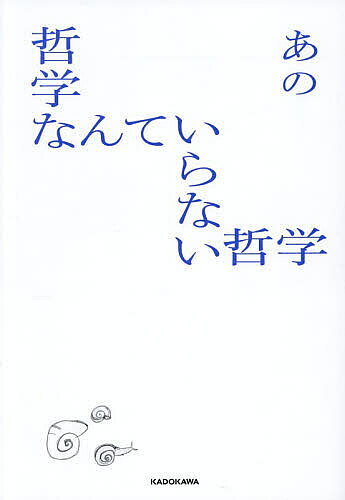 哲学なんていらない哲学
あの
KADOKAWA